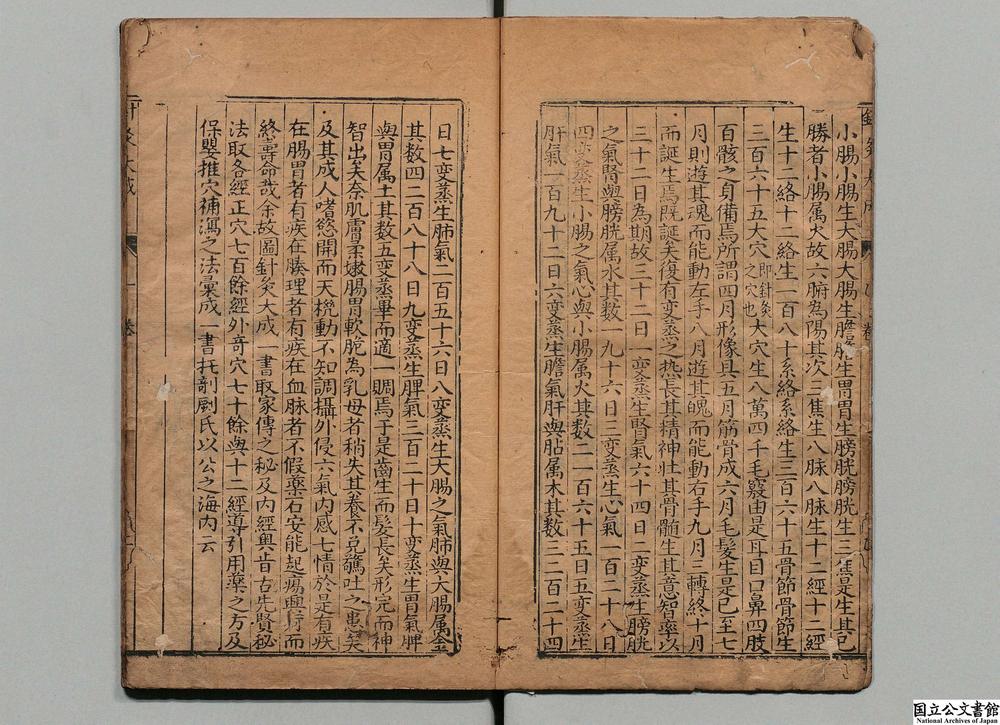 小腸小腸生大腸大腸生膽膽生胃胃生膀胱膀胱生三焦是生其已
勝者小腸属火故六腑為陽其次三焦生八脉八脉生十二經十二經
生十二絡十二絡生一百八十系絡系絡生三百六十五骨節骨節生
三百六十五大穴即針灸之穴也大穴生八萬四千毛竅由是耳目口鼻四肢
百骸之身備焉所謂四月形像具五月筋骨成六月毛髮生是已至七
月則遊其魂而能動左手八月遊其魄而能動右手九月三轉終十月
而誕生焉既誕矣復有变蒸之热長其精神壯其骨髓生其意智率以
三十二日為期故三十二日一变蒸生腎氣六十四日二变蒸生膀胱
之氣腎與膀胱属水其数一九十六日三变蒸生心氣一百二十八日
四变蒸生小腸之氣心與小腸属火其数二一百六十五日五变蒸生
肝氣一百九十二日六变蒸生膽氣肝與胆属木其数三二百二十四
日七变蒸生肺氣二百五十六日八变蒸生大腸之氣肺與大腸属金
其数四二百八十八日九变蒸生脾氣三百二十日十变蒸生胃氣脾
與胃属土其数五变蒸畢而適一期焉于是齒生而髮長矣形完而神
智出矣奈肌膚柔嫩腸胃軟脆為乳母者稍失其養不免驚吐之患矣
及其成人嗜慾開而天機動不知調攝外侵六氣内感七情於是有疾
在腸胃者有疾在腠理者有疾在血脉者不假藥石安能起痬興㾏而
終壽命哉余故圖針灸大成一書取家傳之秘及内經奥旨古先賢秘
法取各經正穴七百餘經外竒穴七十餘與十二經導引用藥之方及
保嬰推穴補瀉之法彙成一書托剞劂氏以公之海内云
針灸大成
卷
国立公文書館
National Archives of Japan